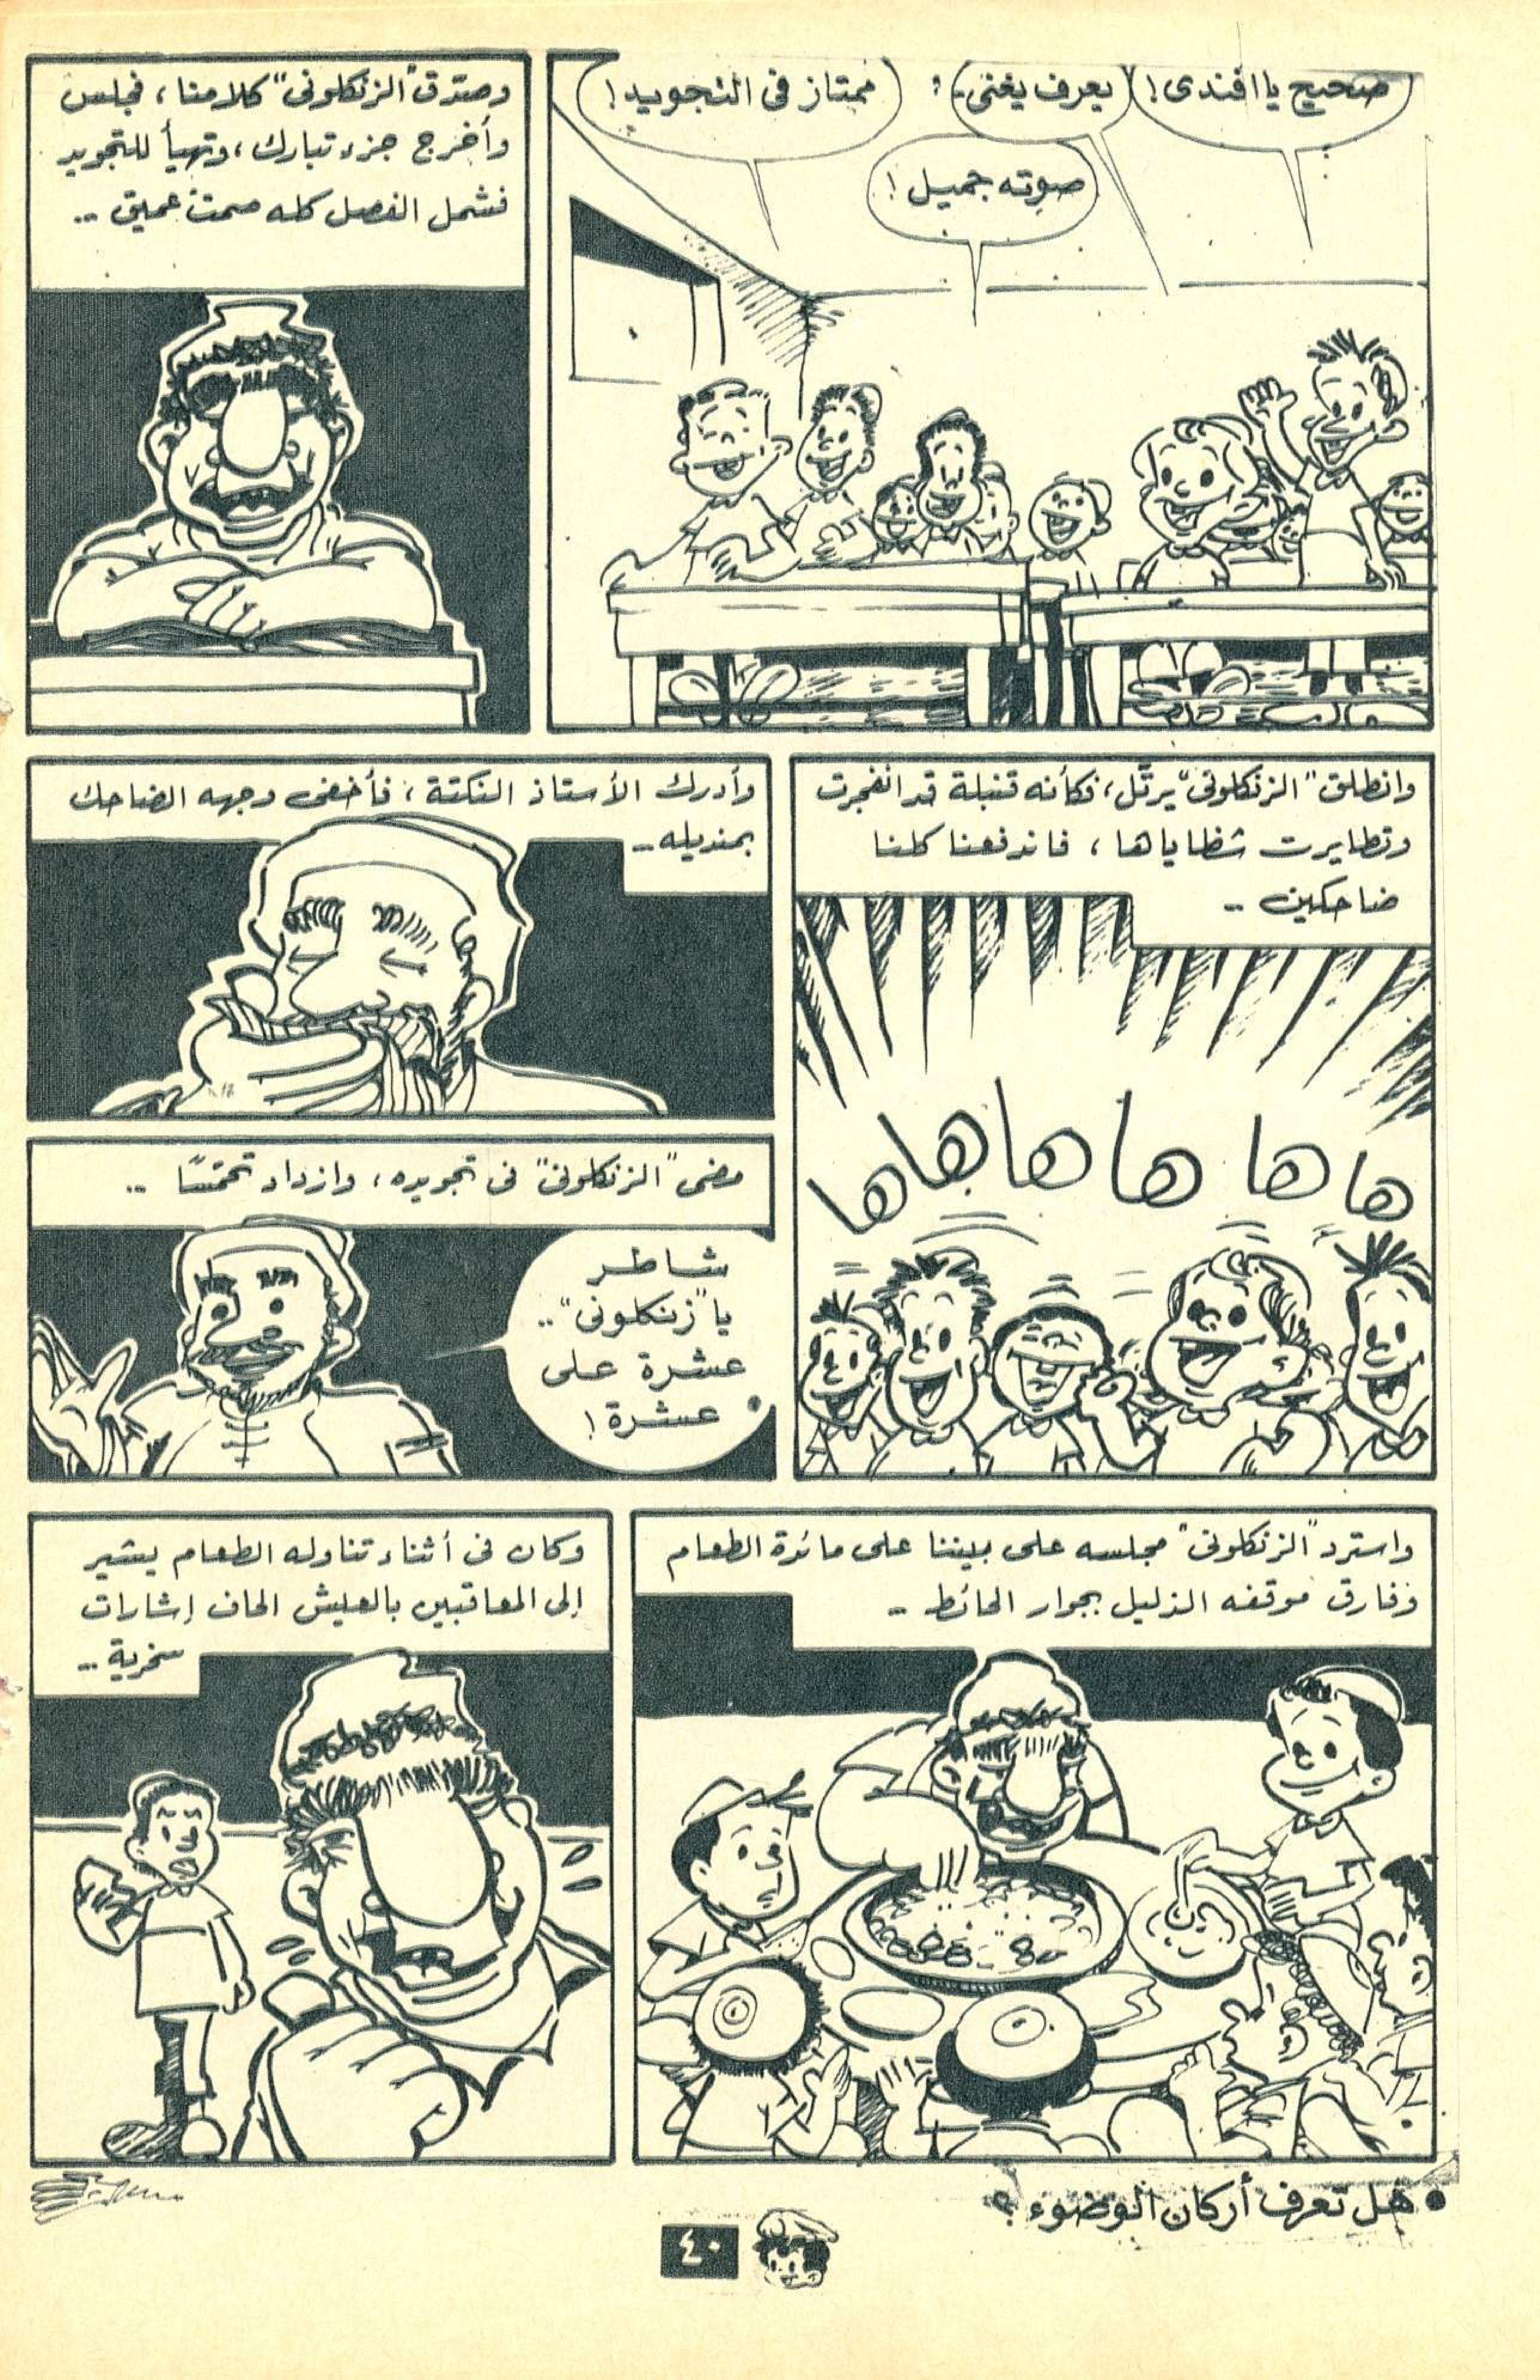 صحيح يا افندى!
يعرف يغنى..
ممتاز فى التجويد!
صوته جميل!
وصدق "الزنكلونى" كلامنا، فجلس
وأخرج جزء تبارك، وتهيأ للتجويد
فشمل الفصل كله صمت عميق ..
وانطلق "الزنكلونى" يرتّل، فكأنه قنبلة قد انفجرت
وتطايرت شظاياها، فاندفعنا كلنا
ضاحكين ..
ها ها ها ها ها ها
وأدرك الأستاذ النكتة، فأخفى وجهه الضاحك
بمنديله ..
مضى "الزنكلونى" فى تجويده، وازداد تحمّسًا ..
شاطر
يا "زنكلونى" ..
عشرة على
عشرة!
واسترد "الزنكلونى" مجلسه على بيننا على مائدة الطعام
وفارق موقفه الذليل بجوار الحائط ..
وكان فى أثناء تناوله الطعام يشير
إلى المعاقبين بالعيش الحاف إشارات
سخرية ..
• هل تعرف أركان الوضوء؟
٤٠